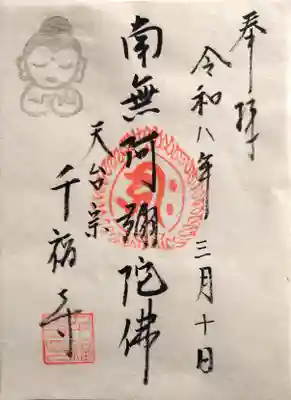 奉拝
令和八年 三月十日
南無阿弥陀佛
天台宗
千福寺